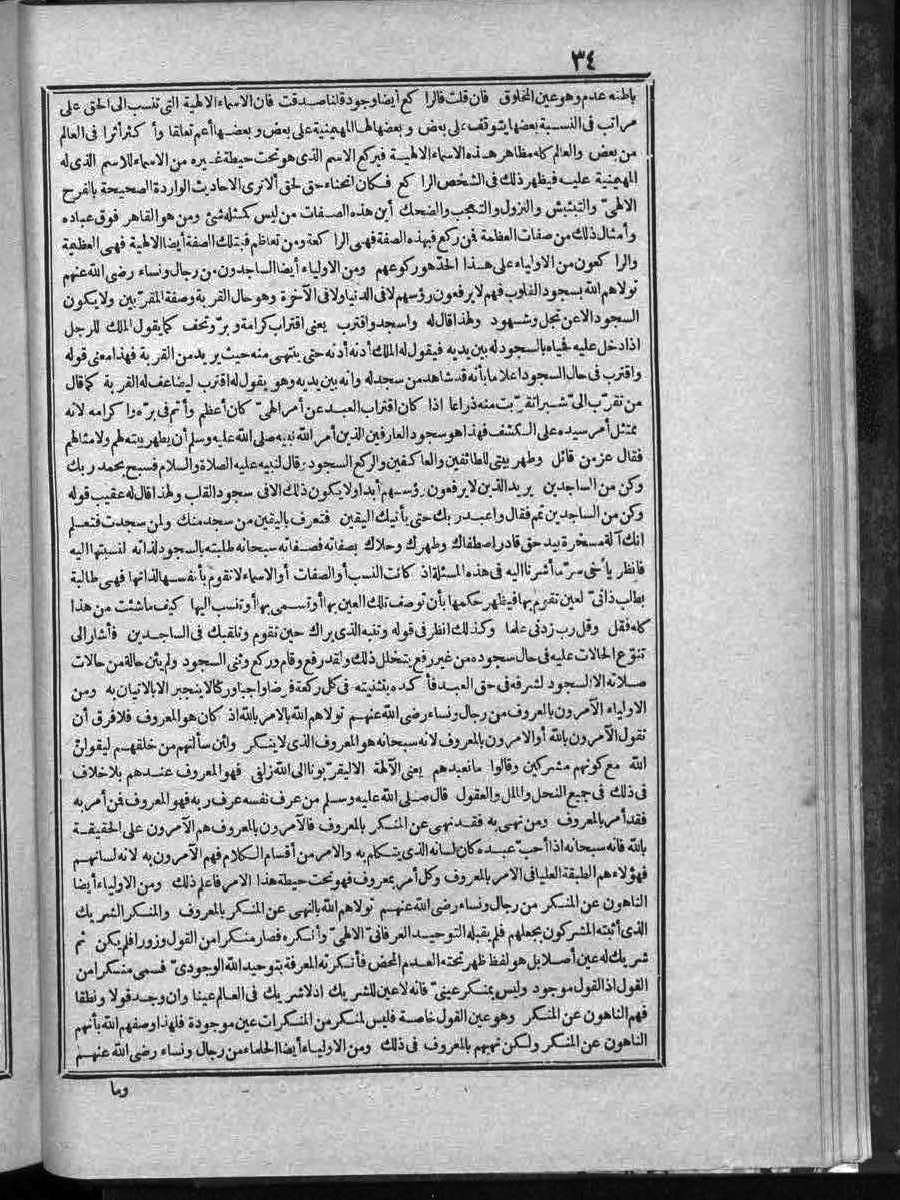 ٣٤
باطنه عدم وهو عين المخلوق فان قلت فالراكع أيضا وجود قلنا صدقت فان الاسماء الالهية التى تنسب الى الحق على
مراتب فى النسبة بعضها يتوقف على بعض وبعضها لها المهيمنية على بعض وبعضها أعم تعلقا وأكثر أثرا فى العالم
من بعض والعالم كله مظاهر هذه الاسماء الالهية فيركع الاسم الذى هو تحت حيطة غيره من الاسماء للاسم الذى له
المهيمنية عليه فيظهر ذلك فى الشخص الراكع فكان انحناء حق لحق ألا ترى الاحاديث الواردة الصحيحة بالفرح
الالهىّ والتبشبش والنزول والتعجب والضحك أين هذه الصفات من ليس كمثله شئ ومن هو القاهر فوق عباده
وأمثال ذلك من صفات العظمة فمن ركع فبهذه الصفة فهى الراكعة ومن تعاظم فبتلك الصفة أيضا الالهية فهى العظيمة
والراكعون من الاولياء على هذا الحدّ هو ركوعهم ومن الاولياء أيضا الساجدون من رجال ونساء رضى الله عنهم
تولاهم الله بسجود القلوب فهم لا يرفعون رؤسهم لا فى الدنيا ولا فى الآخرة وهو حال القربة وصفة المقرّبين ولا يكون
السجود الا عن تجل وشهود ولهذا قال له واسجد واقترب يعنى اقتراب كرامة وبرّ وتحف كما يقول الملك للرجل
اذا دخل عليه فحياه بالسجود له بين يديه فيقول له الملك أدنه أدنه حتى ينتهى منه حيث يريد من القربة فهذا معنى قوله
واقترب فى حال السجود اعلاما بأنه قد شاهد من سجد له وانه بين يديه وهو يقول له اقترب ليضاعف له القربة كما قال
من تقرّب الىّ شبرا تقرّبت منه ذراعا اذا كان اقتراب العبد عن أمر الهىّ كان أعظم وأتم فى برّه واكرامه لانه
ممتثل أمر سيده على الكشف فهذا هو سجود العارفين الذين أمر الله نبيه صلى الله عليه وسلم أن يطهر بيته لهم ولامثالهم
فقال عز من قائل وطهر بيتى للطائفين والعاكفين والركع السجود وقال لنبيه عليه الصلاة والسلام فسبح بحمد ربك
وكن من الساجدين يريد الذين لا يرفعون رؤسهم أبدا ولا يكون ذلك الا فى سجود القلب ولهذا قال له عقيب قوله
وكن من الساجدين تمم فقال واعبد ربك حتى يأتيك اليقين فتعرف باليقين من سجد منك ولمن سجدت فتعلم
انك آلة مسخرة بيد حق قادر اصطفاك وطهرك وحلاك بصفاته فصفاته سبحانه طلبته بالسجود لذاته لنسبتها اليه
فانظر يا أخى سرّ ما أشرنا اليه فى هذه المسئلة اذ كانت النسب أو الصفات أو الاسماء لا تقوم بأنفسها لذاتها فهى طالبة
بطلب ذاتىّ لعين تقوم بها فيظهر حكمها بأن توصف تلك العين بها أو تسمى بها أو تنسب اليها كيف ما شئت من هذا
كله فقل وقل رب زدنى علما وكذلك انظر فى قوله وتنبه الذى يراك حين تقوم وتقلبك فى الساجدين فأشار الى
تنوّع الحالات عليه فى حال سجوده من غير رفع يتخلل ذلك ولقد رفع وقام وركع وثنى السجود ولم يثن حالة من حالات
صلاته الا السجود لشرفه فى حق العبد فأكده بتثنيته فى كل ركعة فرضا واجبا وركنا لا ينجبر الا بالاتيان به ومن
الاولياء الآمرون بالمعروف من رجال ونساء رضى الله عنهم تولاهم الله بالامر بالله اذ كان هو المعروف فلا فرق أن
تقول الآمرون بالله أو الآمرون بالمعروف لانه سبحانه هو المعروف الذى لا ينكر ولئن سألتهم من خلقهم ليقولنّ
الله مع كونهم مشركين وقالوا ما نعبدهم يعنى الآلهة الا ليقرّبونا الى الله زلفى فهو المعروف عندهم بلا خلاف
فى ذلك فى جميع النحل والملل والعقول قال صلى الله عليه وسلم من عرف نفسه عرف ربه فهو المعروف فمن أمر به
فقد أمر بالمعروف ومن نهى به فقد نهى عن المنكر بالمعروف فالآمرون بالمعروف هم الآمرون على الحقيقة
بالله فانه سبحانه اذا أحبّ عبده كان لسانه الذى يتكلم به والامر من أقسام الكلام فهم الآمرون به لانه لسانهم
فهؤلاء هم الطبقة العليا فى الامر بالمعروف وكل أمر بمعروف فهو تحت حيطة هذا الامر فاعلم ذلك ومن الاولياء أيضا
الناهون عن المنكر من رجال ونساء رضى الله عنهم تولاهم الله بالنهى عن المنكر بالمعروف والمنكر الشريك
الذى أثبته المشركون بجعلهم فلم يقبله التوحيد العرفانىّ الالهىّ وأنكره فصار منكرا من القول وزورا فلم يكن ثم
شريك له عين أصلا بل هو لفظ ظهر تحته العدم المحض فأنكرته المعرفة بتوحيد الله الوجودىّ فسمى منكرا من
القول اذ القول موجود وليس بمنكر عينىّ فانه لا عين للشريك اذ لا شريك فى العالم عينا وان وجد قولا ونطقا
فهم الناهون عن المنكر وهو عين القول خاصة فليس لمنكر من المنكرات عين موجودة فلهذا وصفهم الله بأنهم
الناهون عن المنكر ولكن نهيهم بالمعروف فى ذلك ومن الاولياء أيضا الحلماء من رجال ونساء رضى الله عنهم
وما